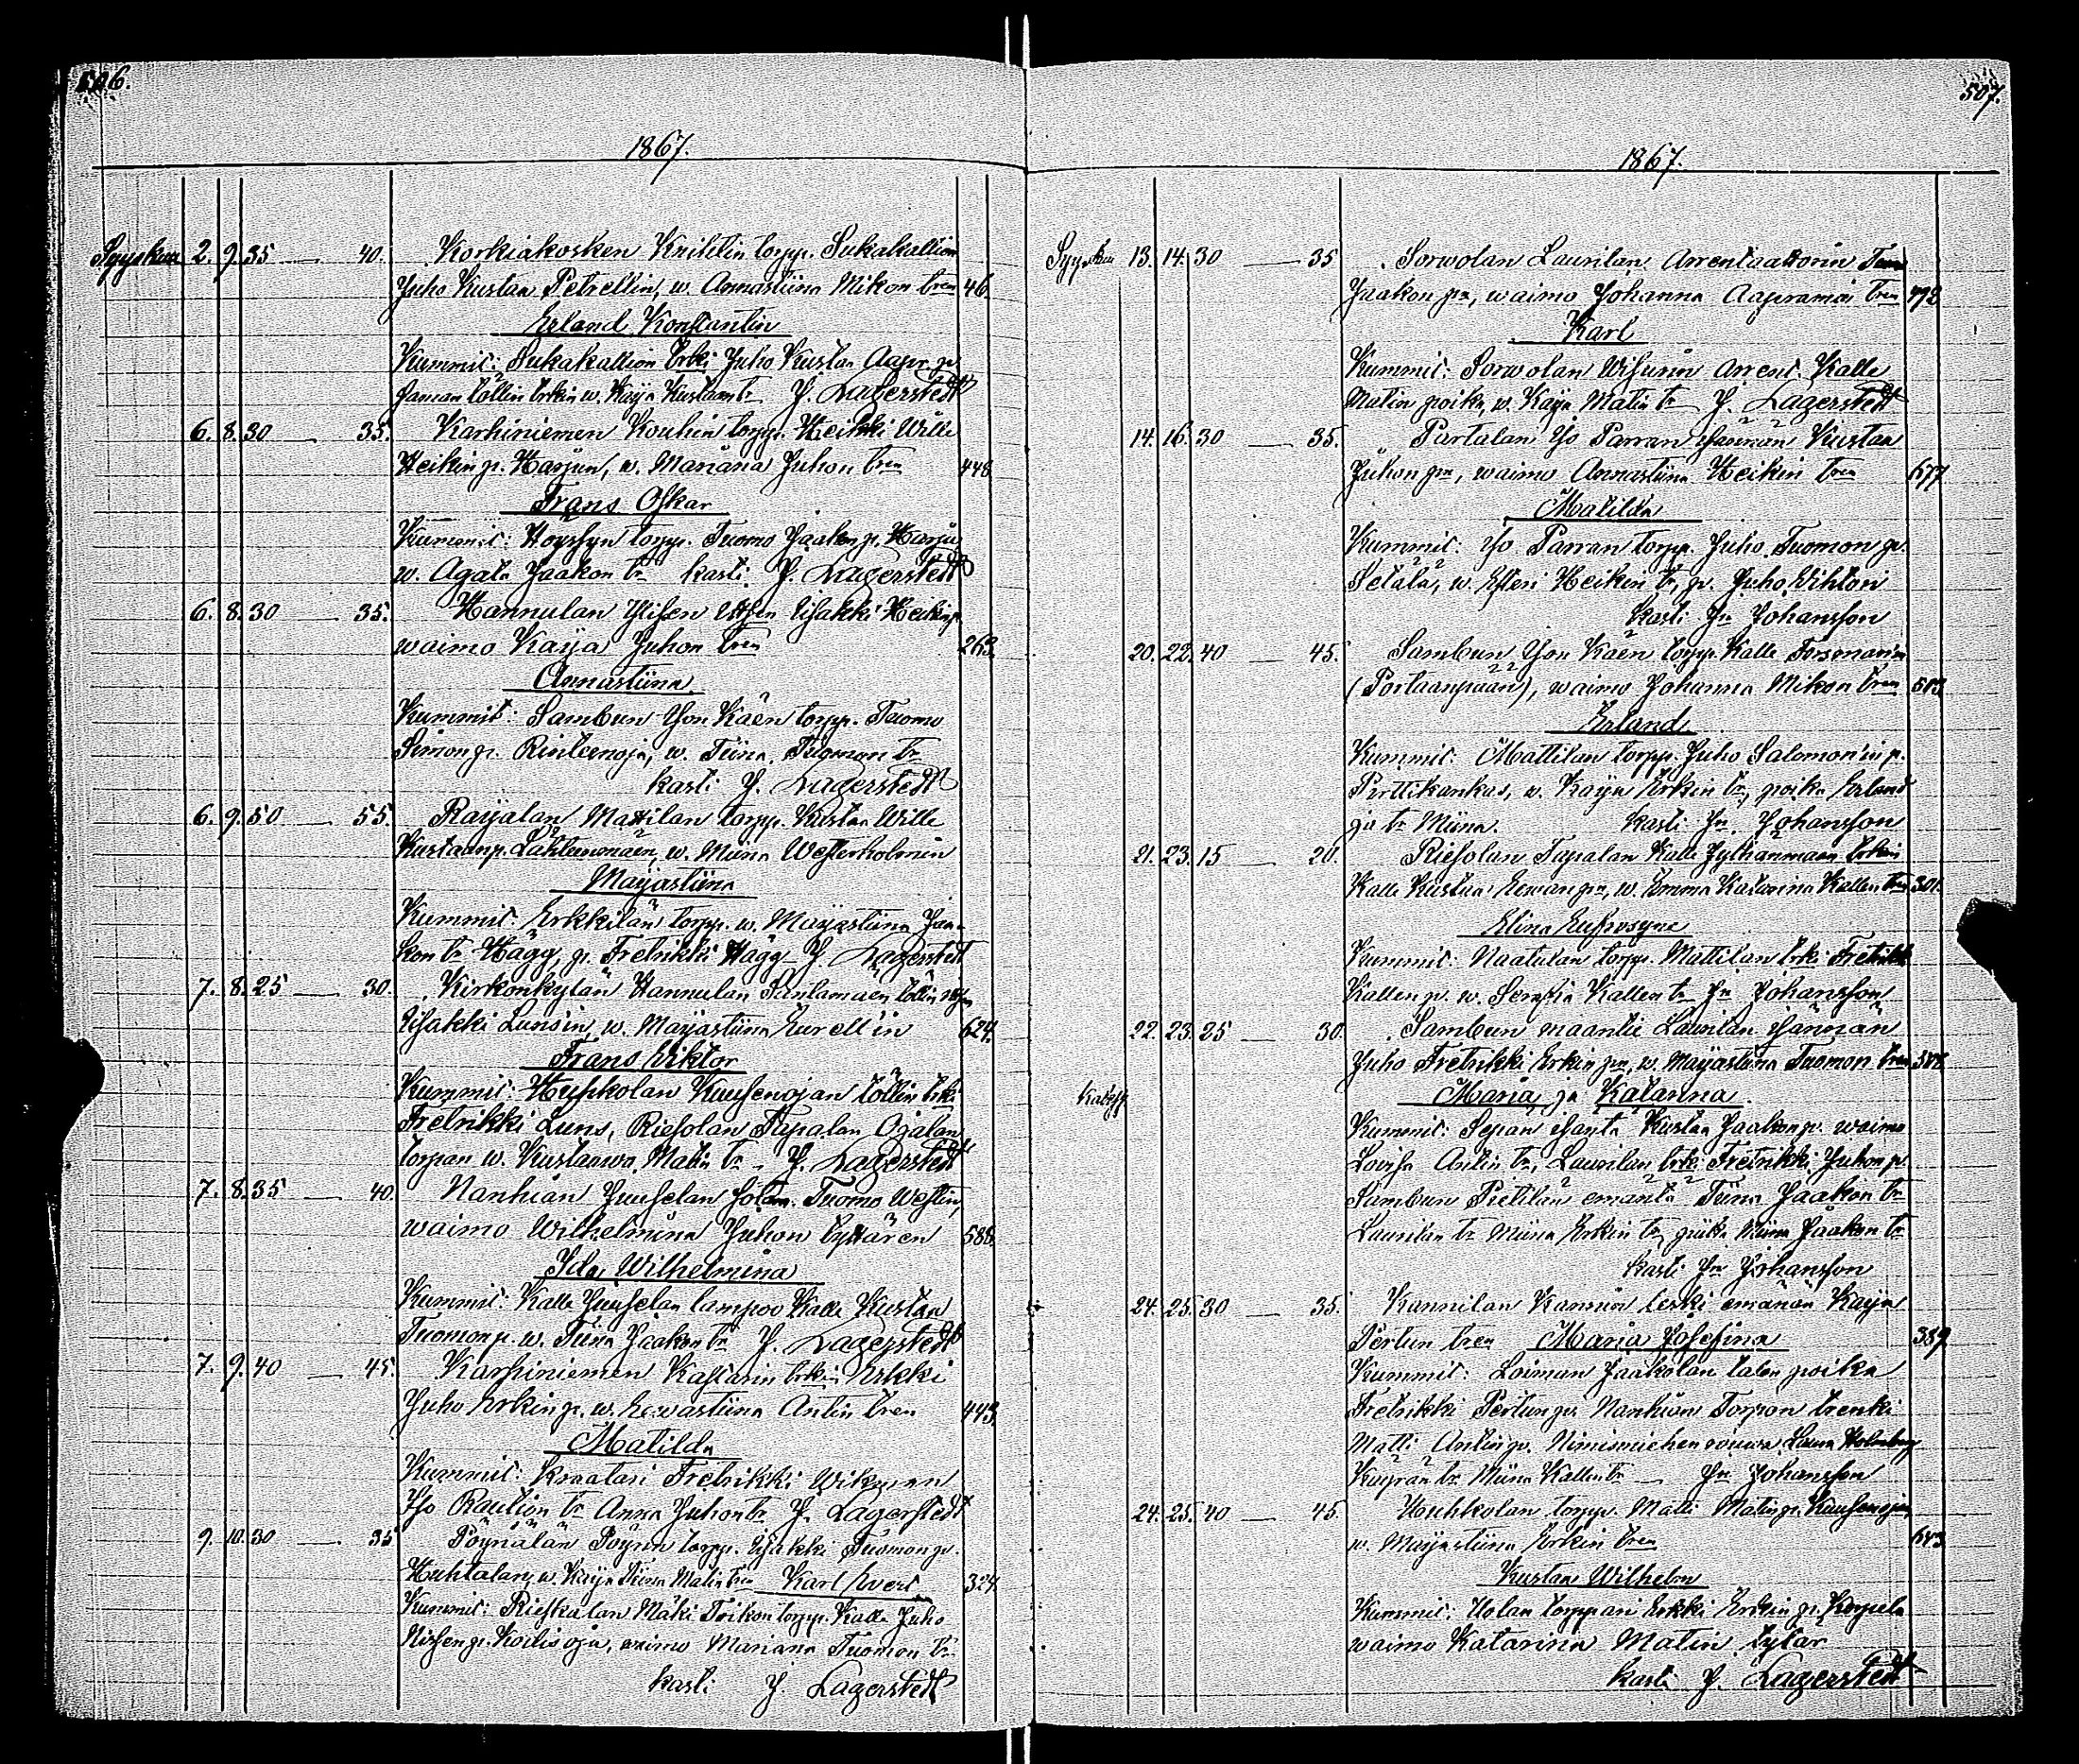 506.
1867.
Syyskuu 2. 9. 35 — 40. Korkiakosken Knihtin torpp. Sukakallion
Juho Kustan Petrellin, w. Annastiina Mikon tren 46.
Erland Konstantin
Kummit: Sukakallion trki Juho Kustan Aapr. p.
w. Kaija Kustaan tr J. Lagerstedt
6. 8. 30 — 35. Karhiniemen Kouhin torpp. Heikki Wille
Heikin p. Harjun, w. Mariana Juhon tren 448
Frans Oskar
Kummit: torpp. Tuomo Jaakon p. Harju
w. Agata Jaakon tr kasti J. Lagerstedt
6. 8. 30 — 35. Hannulan Isakki Heikin p.
waimo Kaija Juhon tren 263
Annastiina
Kummit: Sambun Yon Käen torpp. Tuomo
Simon p. Rinteenoja, w. Tiina Tuomon tr
kasti J. Lagerstedt
6. 9. 50 — 55. Raijalan Mattilan torpp. Kustan Wille
Kustaan p. Lähteenmäen, w. Miina Westerholmin
Maijastiina
Kummit: Erkkilän torpp. w. Maijastiina Jaa-
kon tr Hägg, p. Fretrikki Hägg J. Lagerstedt
7. 8. 25 — 30. Kirkonkylän Hannulan Santamäen töllin
Isakki Luns'in, w. Maijastiina Eurell'in 624.
Frans Wiktor
Kummit: Huhkolan Kuusenojan töllin trki
Fretrikki Luns, Riesolan Tapalan Ojalan
torpan w. Kustaawa Matin tr J. Lagerstedt
7. 8. 35 — 40. Nanhian Juuselan sotam. Tuomo Westin,
waimo Wilhelmiina Juhon tyttären 588
Ida Wilhelmina
Kummit: Kalle Juuselan lampuo Kalle Kustan
Tuomon p. w. Tiina Jaakon tr J. Lagerstedt
7. 9. 40 — 45. Karhiniemen Kastarin trkin Erkki
Juho Erkin p. w. Eewastiina Antin tren 443
Matilda
Kummit: kraatari Fretrikki Wikman
Iso Raution tr Anna Juhon tr J. Lagerstedt
9. 10. 30 — 35 Pöyriälän Pöyrin torpp. Isakki Tuomon p.
Huhtalan, w. Kaija Stiina Matin tren Karl Evert 324
Kummit: Rieskalan Mäki torpp. Kalle Juho
p. Koilisoja, waimo Mariana Tuomon tr
kasti J. Lagerstedt
507.
1867.
Syyskuu 13. 14. 30 — 35 Sorwolan Laurilan Arrentaattorin
Jaakon pn, waimo Johanna Aapramin tren 492
Karl
Kummit: Sorwolan Wisurin Arrent. Kalle
Matin poika, w. Kaija Matin tr J. Lagerstedt
14. 16. 30 — 35. Partalan Iso Parran isännän Kustan
Juhon pn, waimo Annastiina Heikin tren 677
Matilda
Kummit: Iso Parran torpp. Juho Tuomon p.
Setälä, w. Esteri Heikin tr, p. Juho Wihtori
kasti Jn Johansson
20. 22. 40 — 45. Sambun Yon Käen torpp. Kalle Forsman'in
(Portaanpään), waimo Johanna Mikon tren 503
Erland
Kummit: Mattilan torpp. Juho Salomon'in p.
Perttikankas, w. Kaija Erkin tr, poika Erland
ja tr Miina. kasti Jn Johansson
21. 23. 15 — 20. Riesolan Tapalan trkin
Kalle Kustaa p, w. Emma Katarina Kallen tren 301.
Elina Eufrosyne
Kummit: Naatulan torpp. Mattilan trki Fretrikki
Kallen p. w. Serafia Kallen tr Jn Johansson
22. 23. 25 — 30. Sambun maantie Laurilan isännän
Juho Fretrikki Erkin pn, w. Maijastiina Tuomon tren 508
Kaksos Maria ja Katarina.
Kummit: Sepän isäntä Kustaa Jaakon p. waimo
Lovisa Antin tr, Laurilan trki Fretrikki Juhon p.
Sambun Pietilän emäntä Tiina Jaakon tr
Laurilan tr Miina Erkin tr, piika Miina Jaakon tr
kasti Jn Johansson
24. 25. 30 — 35. Kannilan Kannin leski emännän Kaija
Pertun tren Maria Josefina 389.
Kummit: Loiman Jaakolan talon poika
Fretrikki Pertun p. Nanhian Torpon trenki
Matti Antin p. Nimismiehen rouwa Laura Holmberg
tr Miina Kallen tr — Jn Johansson
24. 25. 40 — 45. Huhkolan torpp. Matti Matin p. Kuusenojan
w. Maijastiina Erkin tren 643
Kustaa Wilhelm
Kummit: Uolan torppari Erkki Erkin p. Korpela
waimo Katarina Matin tytär
kasti J. Lagerstedt